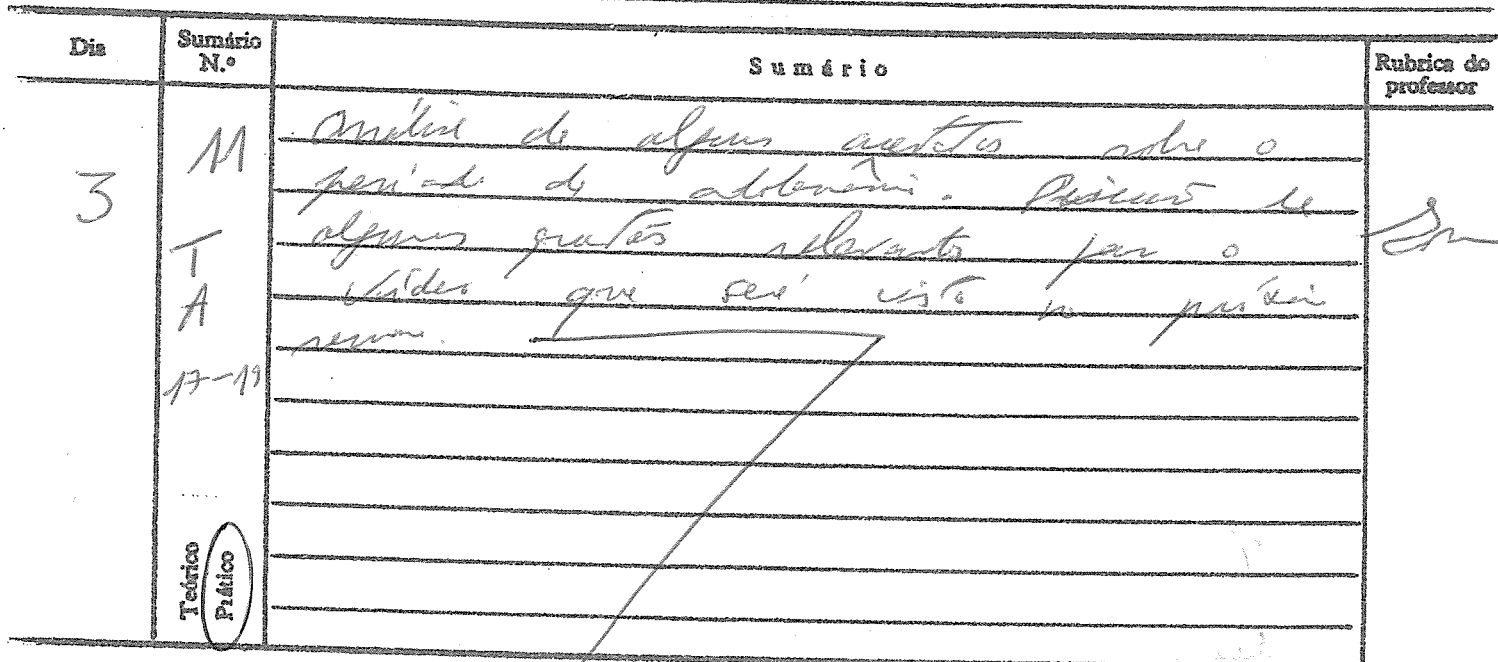 Dia
Sumário N.º
Sumário
Rubrica do professor
3
M
T
A
17-19
Teórico
Prático
Análise de alguns aspectos sobre o
período da adolescência. Discussão de
algumas questões relevantes para o
vídeo que será visto na próxima
semana.